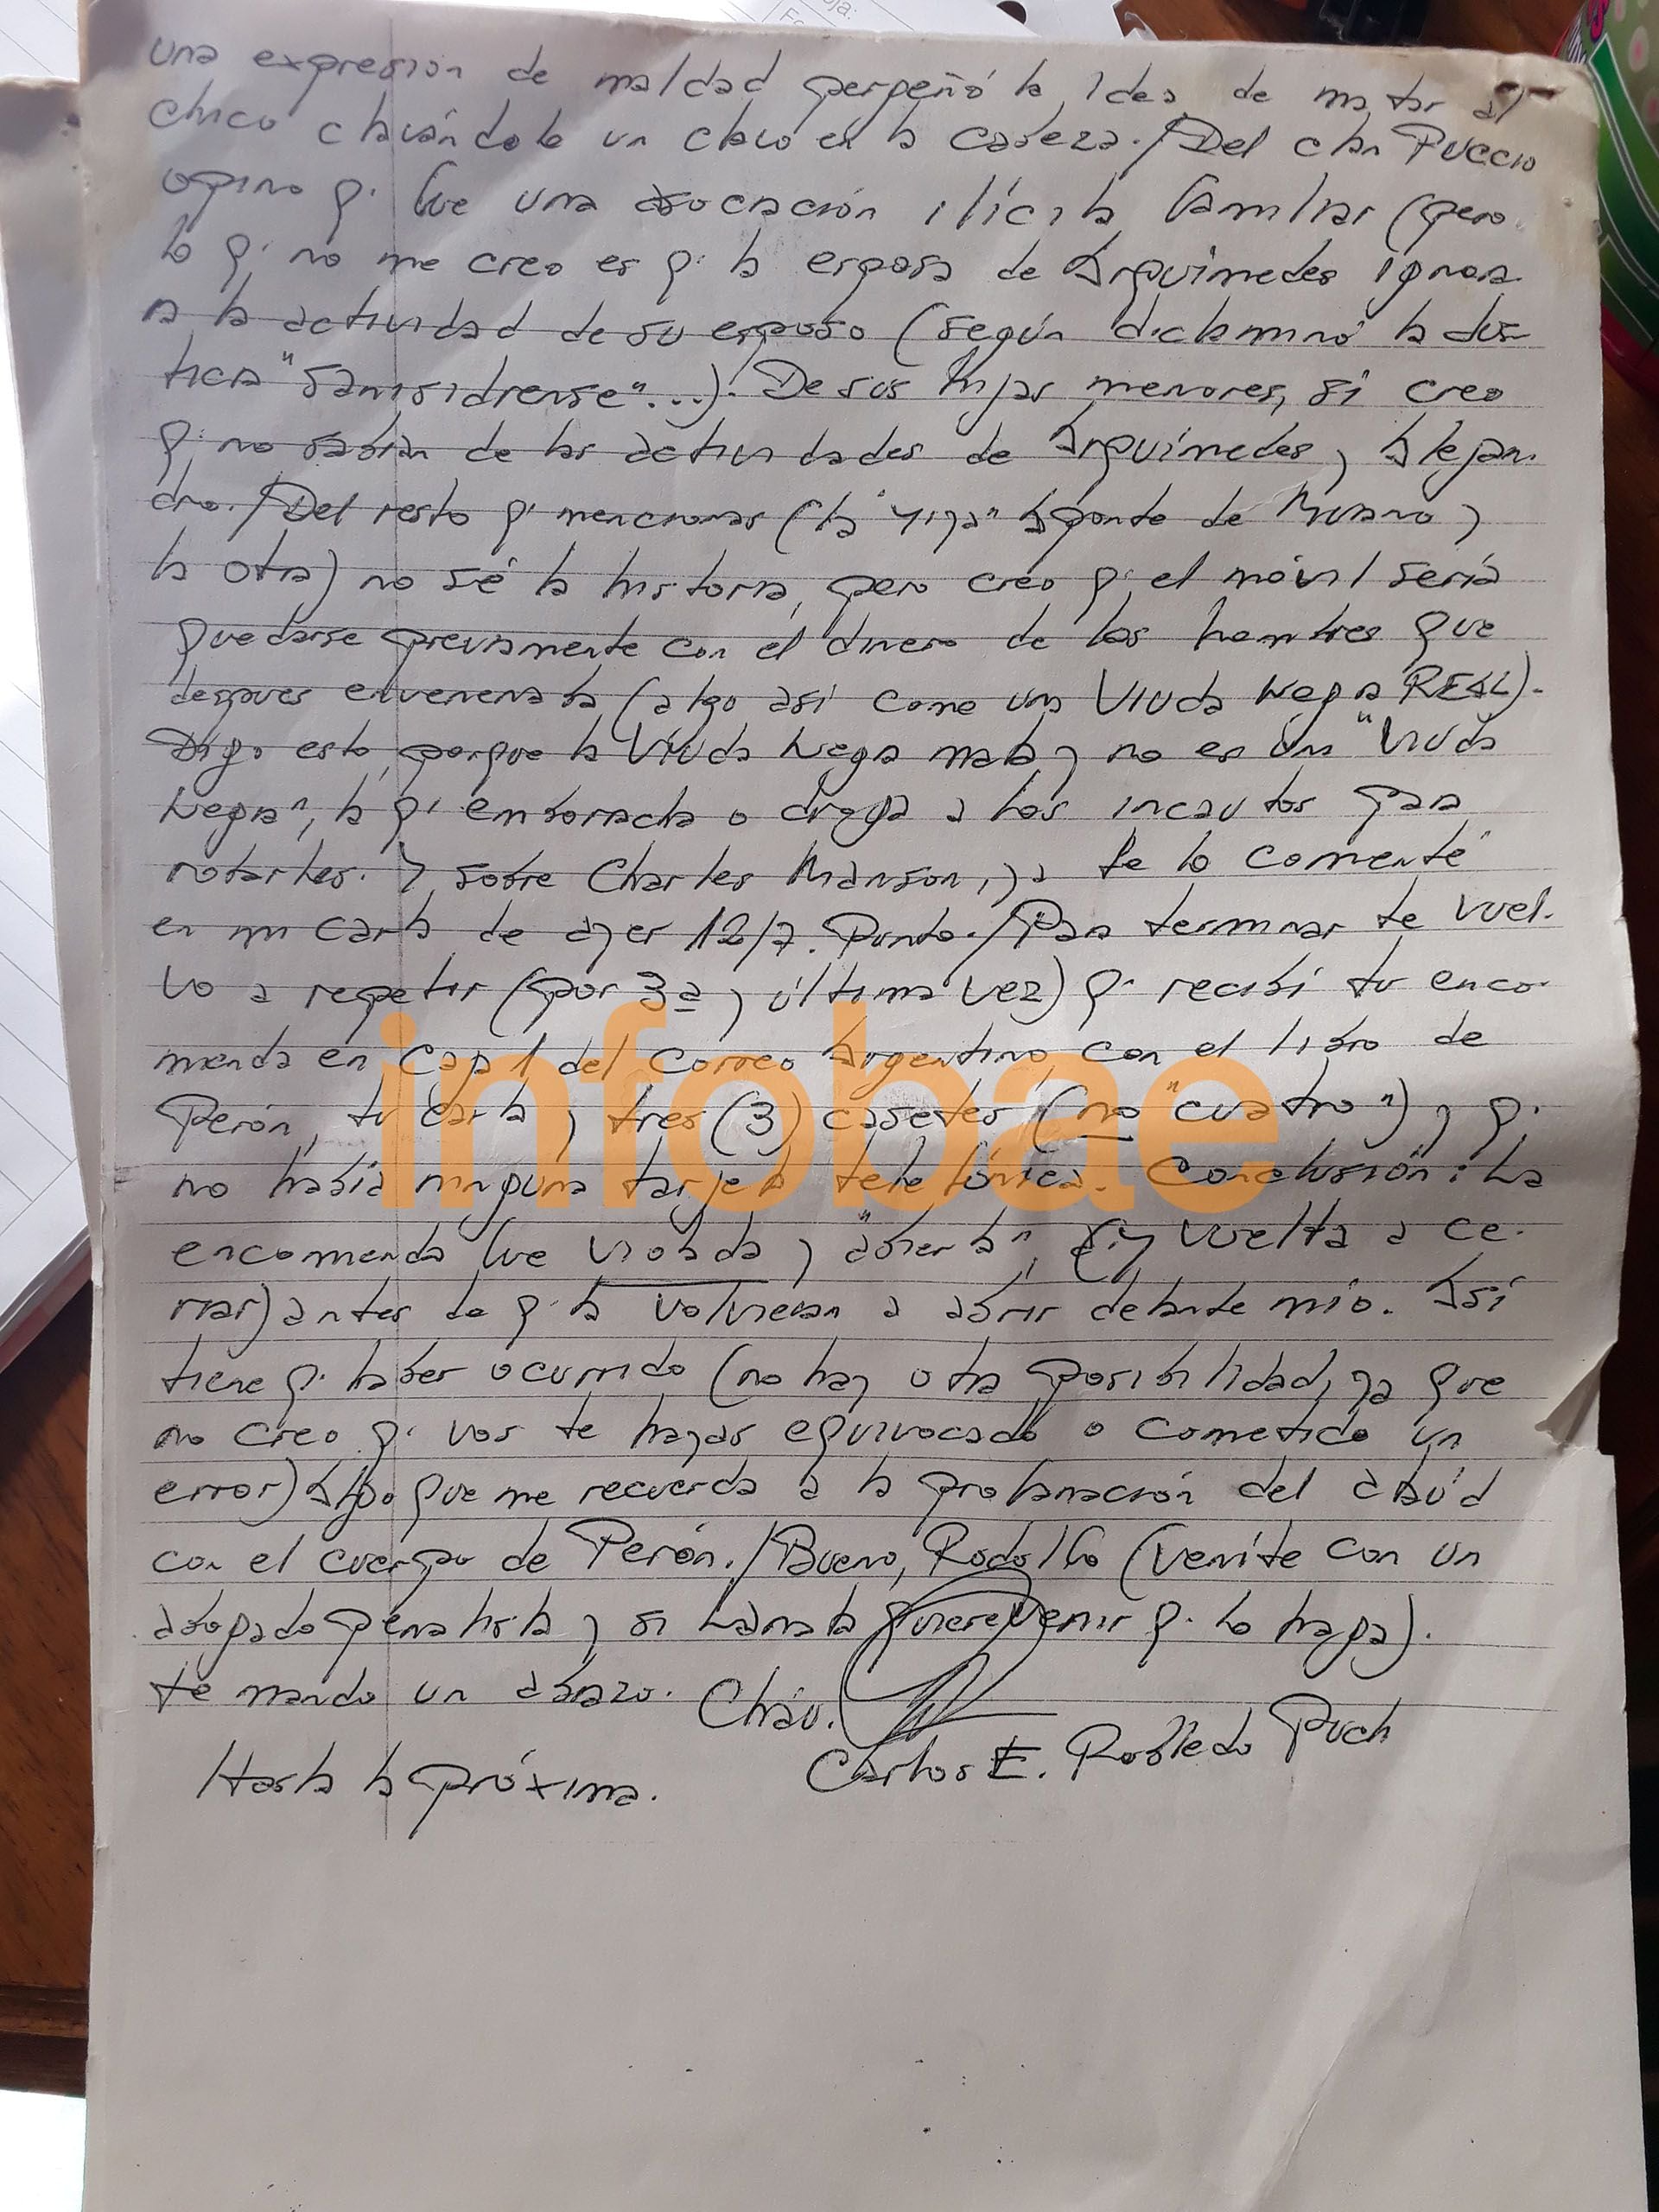 una expresión de maldad pergeñó la idea de matar al
chico clavándole un clavo en la cabeza./Del clan Puccio
opino q' fue una asociación ilícita familiar (pero
lo q' no me creo es q' la esposa de Arquímedes ignora-
ra la actividad de su esposo (según dictaminó la Jus-
ticia "sanisidrense"...). De sus hijas menores, sí creo
q' no sabían de las actividades de Arquímedes y Alejan-
dro./Del resto q' mencionas (la "Yiya" Aponte de Murano y
la otra) no sé la historia, pero creo q' el móvil sería
quedarse previamente con el dinero de los hombres que
después envenenaba (algo así como una Viuda Negra REAL).
Digo esto, porque la Viuda Negra mata y no es una "Viuda
Negra", la q' emborracha o droga a los incautos para
robarles. Y sobre Charles Manson, ya te lo comenté
en mi carta de ayer 12/7. Punto./Para terminar te vuel-
vo a repetir (por 3ª y última vez) q' recibí tu enco-
menda en Cap 1 del Correo Argentino con el libro de
Perón, tu carta y tres (3) casetes (no "cuatro") y q'
no había ninguna tarjeta telefónica. Conclusión: La
encomienda fue violada y "abierta", (y vuelta a ce-
rrar) antes de q' la volvieran a abrir delante mío. Así
tiene q' haber ocurrido (no hay otra posibilidad, ya que
no creo q' vos te hayas equivocado o cometido un
error) Algo que me recuerda a la profanación del ataúd
con el cuerpo de Perón./Bueno, Rodolfo (venite con un
abogado penalista y si quiere venir q' lo haga).
te mando un abrazo. Chau.
Carlos E. Robledo Puch
Hasta la próxima.
infobae